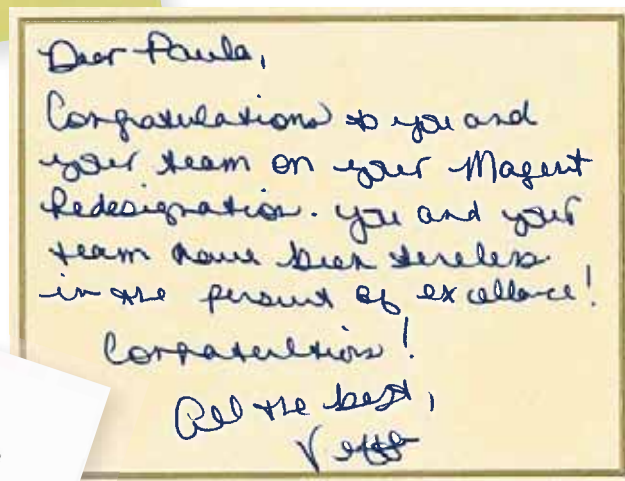 Dear Paula,
Congratulations to you and
your team on your Magent
Redesignation. You and your
team have been tireless
in the persuit of excellance!
Congratulations!
All the best,